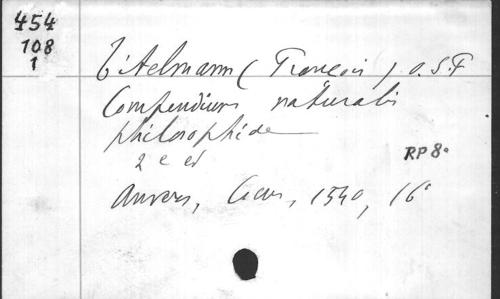 454
108
1
Titelmann (François) O.S.F
Compendium naturalis
philosophiae
2 e ed
RP 8°
Anvers, 1540, 16°